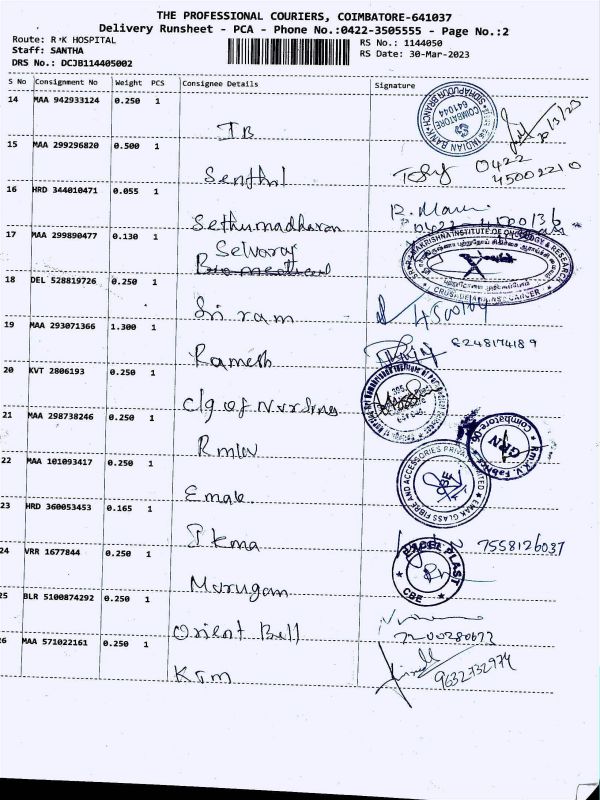 THE PROFESSIONAL COURIERS, COIMBATORE-641037
Delivery Runsheet - PCA - Phone No.:0422-3505555 - Page No.:2
Route: R K HOSPITAL
Staff: SANTHA
DRS No.: DCJB114405002
RS No.: 1144050
RS Date: 30-Mar-2023
S No Consignment No Weight PCS Consignee Details Signature
14 MAA 942933124 0.250 1
IB
INDIAN BANK
COIMBATORE
641044
SIDHAPUDUR BRANCH
15 MAA 299296820 0.500 1
Senthil
0422
45002210
16 HRD 344010471 0.055 1
Sethumadhavan
17 MAA 299890477 0.130 1
Selvaraj
SRI RAMAKRISHNA INSTITUTE OF ONCOLOGY & RESEARCH
CRUSADE AGAINST CANCER
18 DEL 528819726 0.250 1
Sri ram
19 MAA 293071366 1.300 1
Ramesh
8248174189
20 KVT 2806193 0.250 1
Clg of Nursing
21 MAA 298738246 0.250 1
RmKV
Rm.K.V. Fabrics
Coimbatore
GRN
22 MAA 101093417 0.250 1
Emak
EMAK GLASS FIBRE AND ACCESSORIES PRIVATE LIMITED
CBE
23 HRD 360053453 0.165 1
7558126037
24 VRR 1677844 0.250 1
Murugan
PLAST
CBE
25 BLR 5100874292 0.250 1
Orient Bell
7200280677
26 MAA 571022161 0.250 1
9632732974